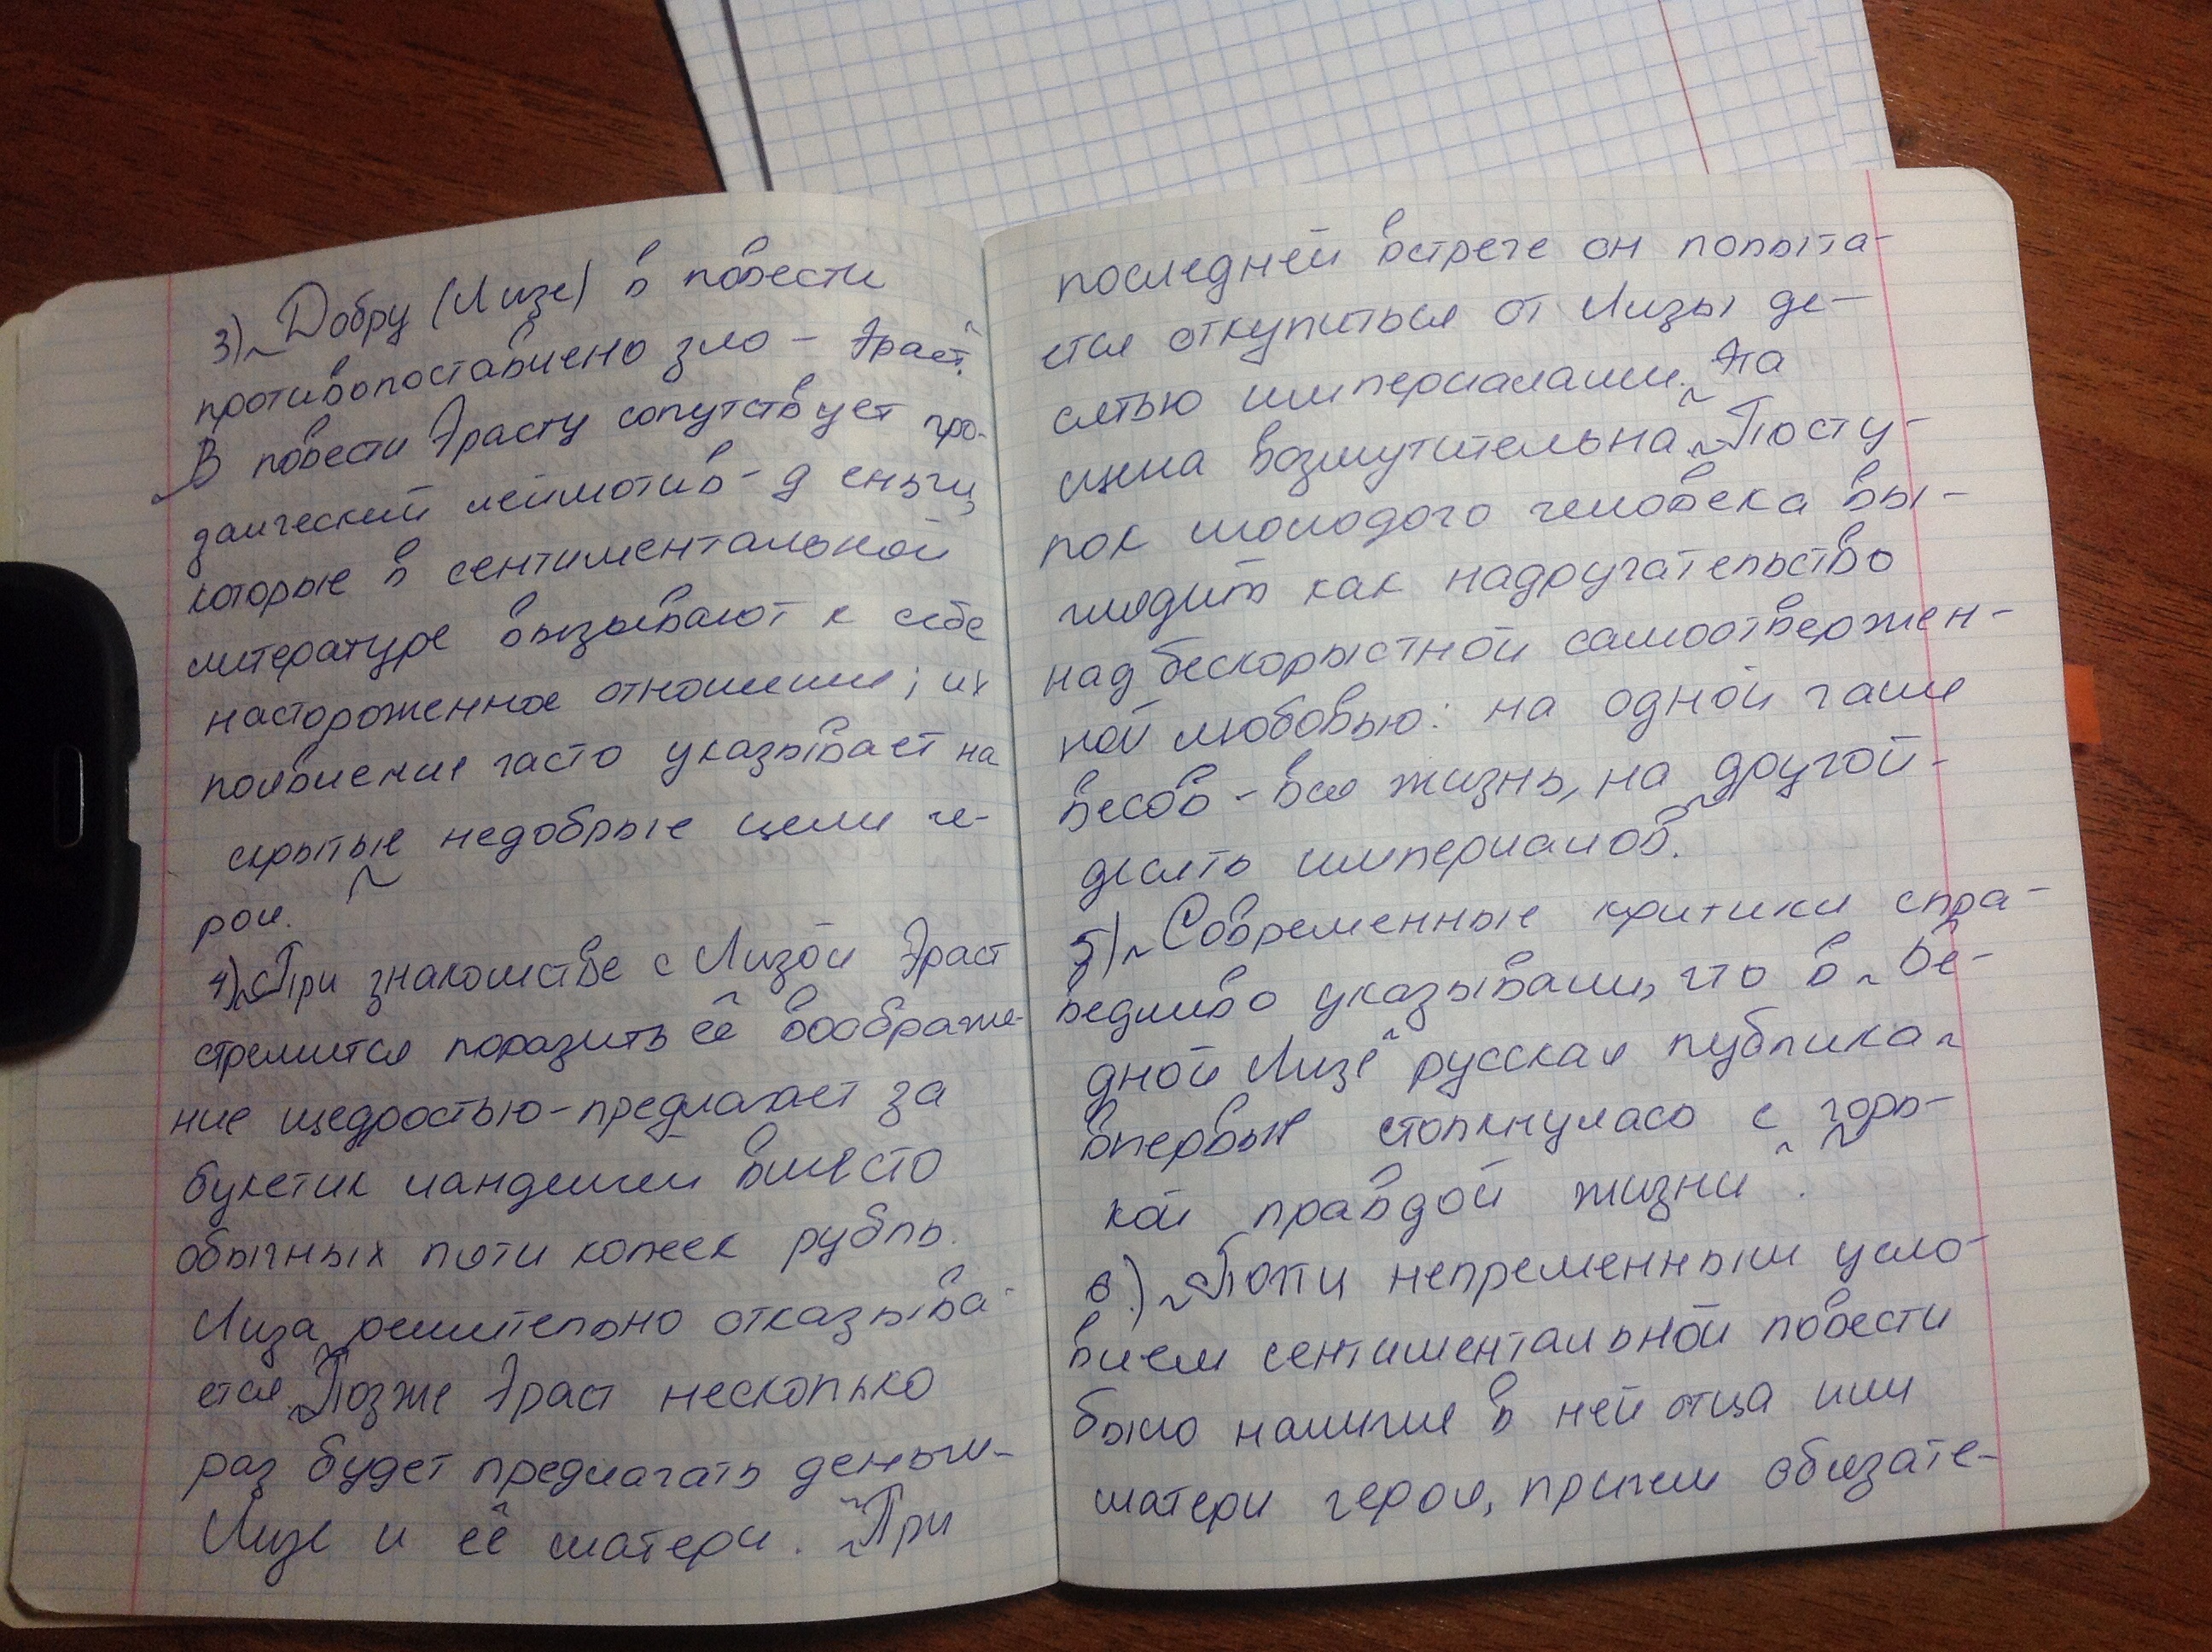 3) „Добру (Лизе) в повести
противопоставлено зло – Эраст".
„В повести Эрасту сопутствует про-
заический леймотив - деньги,
которые в сентиментальной
литературе вызывают к себе
настороженное отношение; их
появление часто указывает на
скрытые недобрые цели ге-
роя.
4) „При знакомстве с Лизой Эраст
стремится поразить её воображе-
ние щедростью-предлагает за
букетик ландышей вместо
обычных пяти копеек рубль.
Лиза решительно отказыва-
ется. Позже Эраст несколько
раз будет предлагать деньги-
Лизе и её матери. „При
последней встрече он попыта-
ется откупиться от Лизы де-
сятью империалами. „Эта
сцена возмутительна „Посту-
пок молодого человека вы-
глядит как надругательство
над бескорыстной самоотвержен-
ной любовью: на одной чаше
весов - вся жизнь, на другой-
десять империалов.
5) „Современные критики спра-
ведливо указывали, что в „Бе-
дной Лизе" русская публика
впервые столкнулась с „горь-
кой правдой жизни".
6) „Почти непременным усло-
вием сентиментальной повести
было наличие в ней отца или
матери героя, причем обязате-